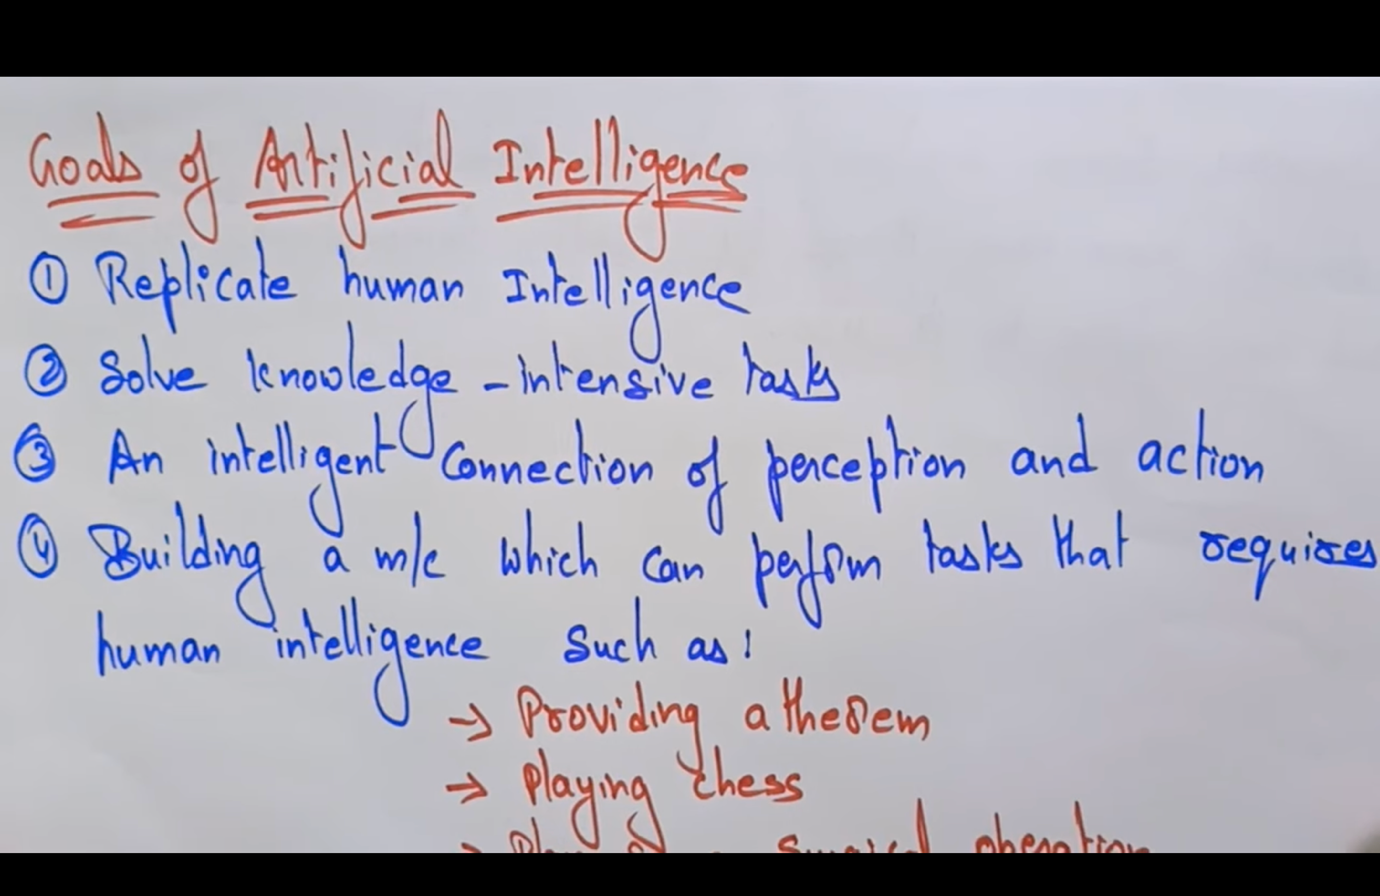 Goals of Artificial Intelligence
① Replicate human Intelligence
② Solve knowledge-intensive tasks
③ An intelligent Connection of perception and action
④ Building a m/c which can perform tasks that requires
human intelligence such as:
→ Providing a theorem
→ Playing chess
→ surgical operation